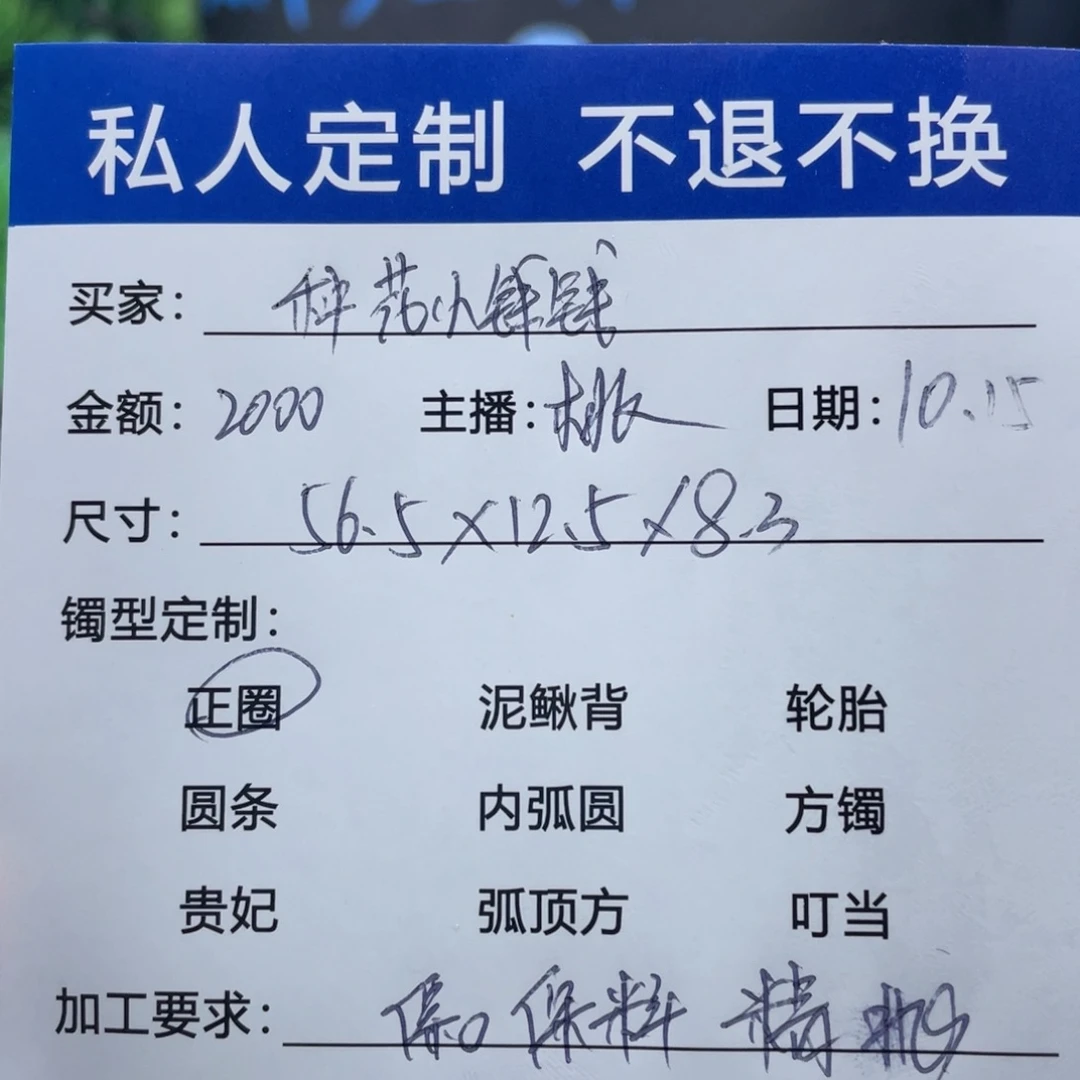 私人定制 不退不换
买家:
金额: 2000 主播: 日期: 10.15
尺寸: 56.5×12.5×8.3
镯型定制:
正圈 泥鳅背 轮胎
圆条 内弧圆 方镯
贵妃 弧顶方 叮当
加工要求: 保料